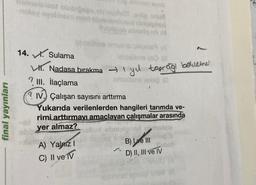 14. I. Sulama
II. Nadasa bırakma → 1 yıl toprağı
? III. İlaçlama
? IV. Çalışan sayısını arttırma
Yukarıda verilenlerden hangileri tarımda ve-
rimi arttırmayı amaçlayan çalışmalar arasında
yer almaz?
A) Yalnız I
B) I ve III
C) II ve IV
D) II, III ve IV
final yayınları